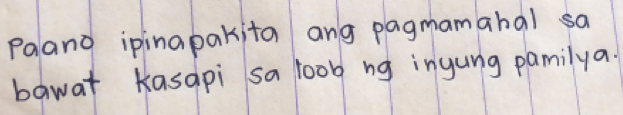 Paano ipinapakita ang pagmamahal sa
bawat kasapi sa loob ng inyung pamilya.